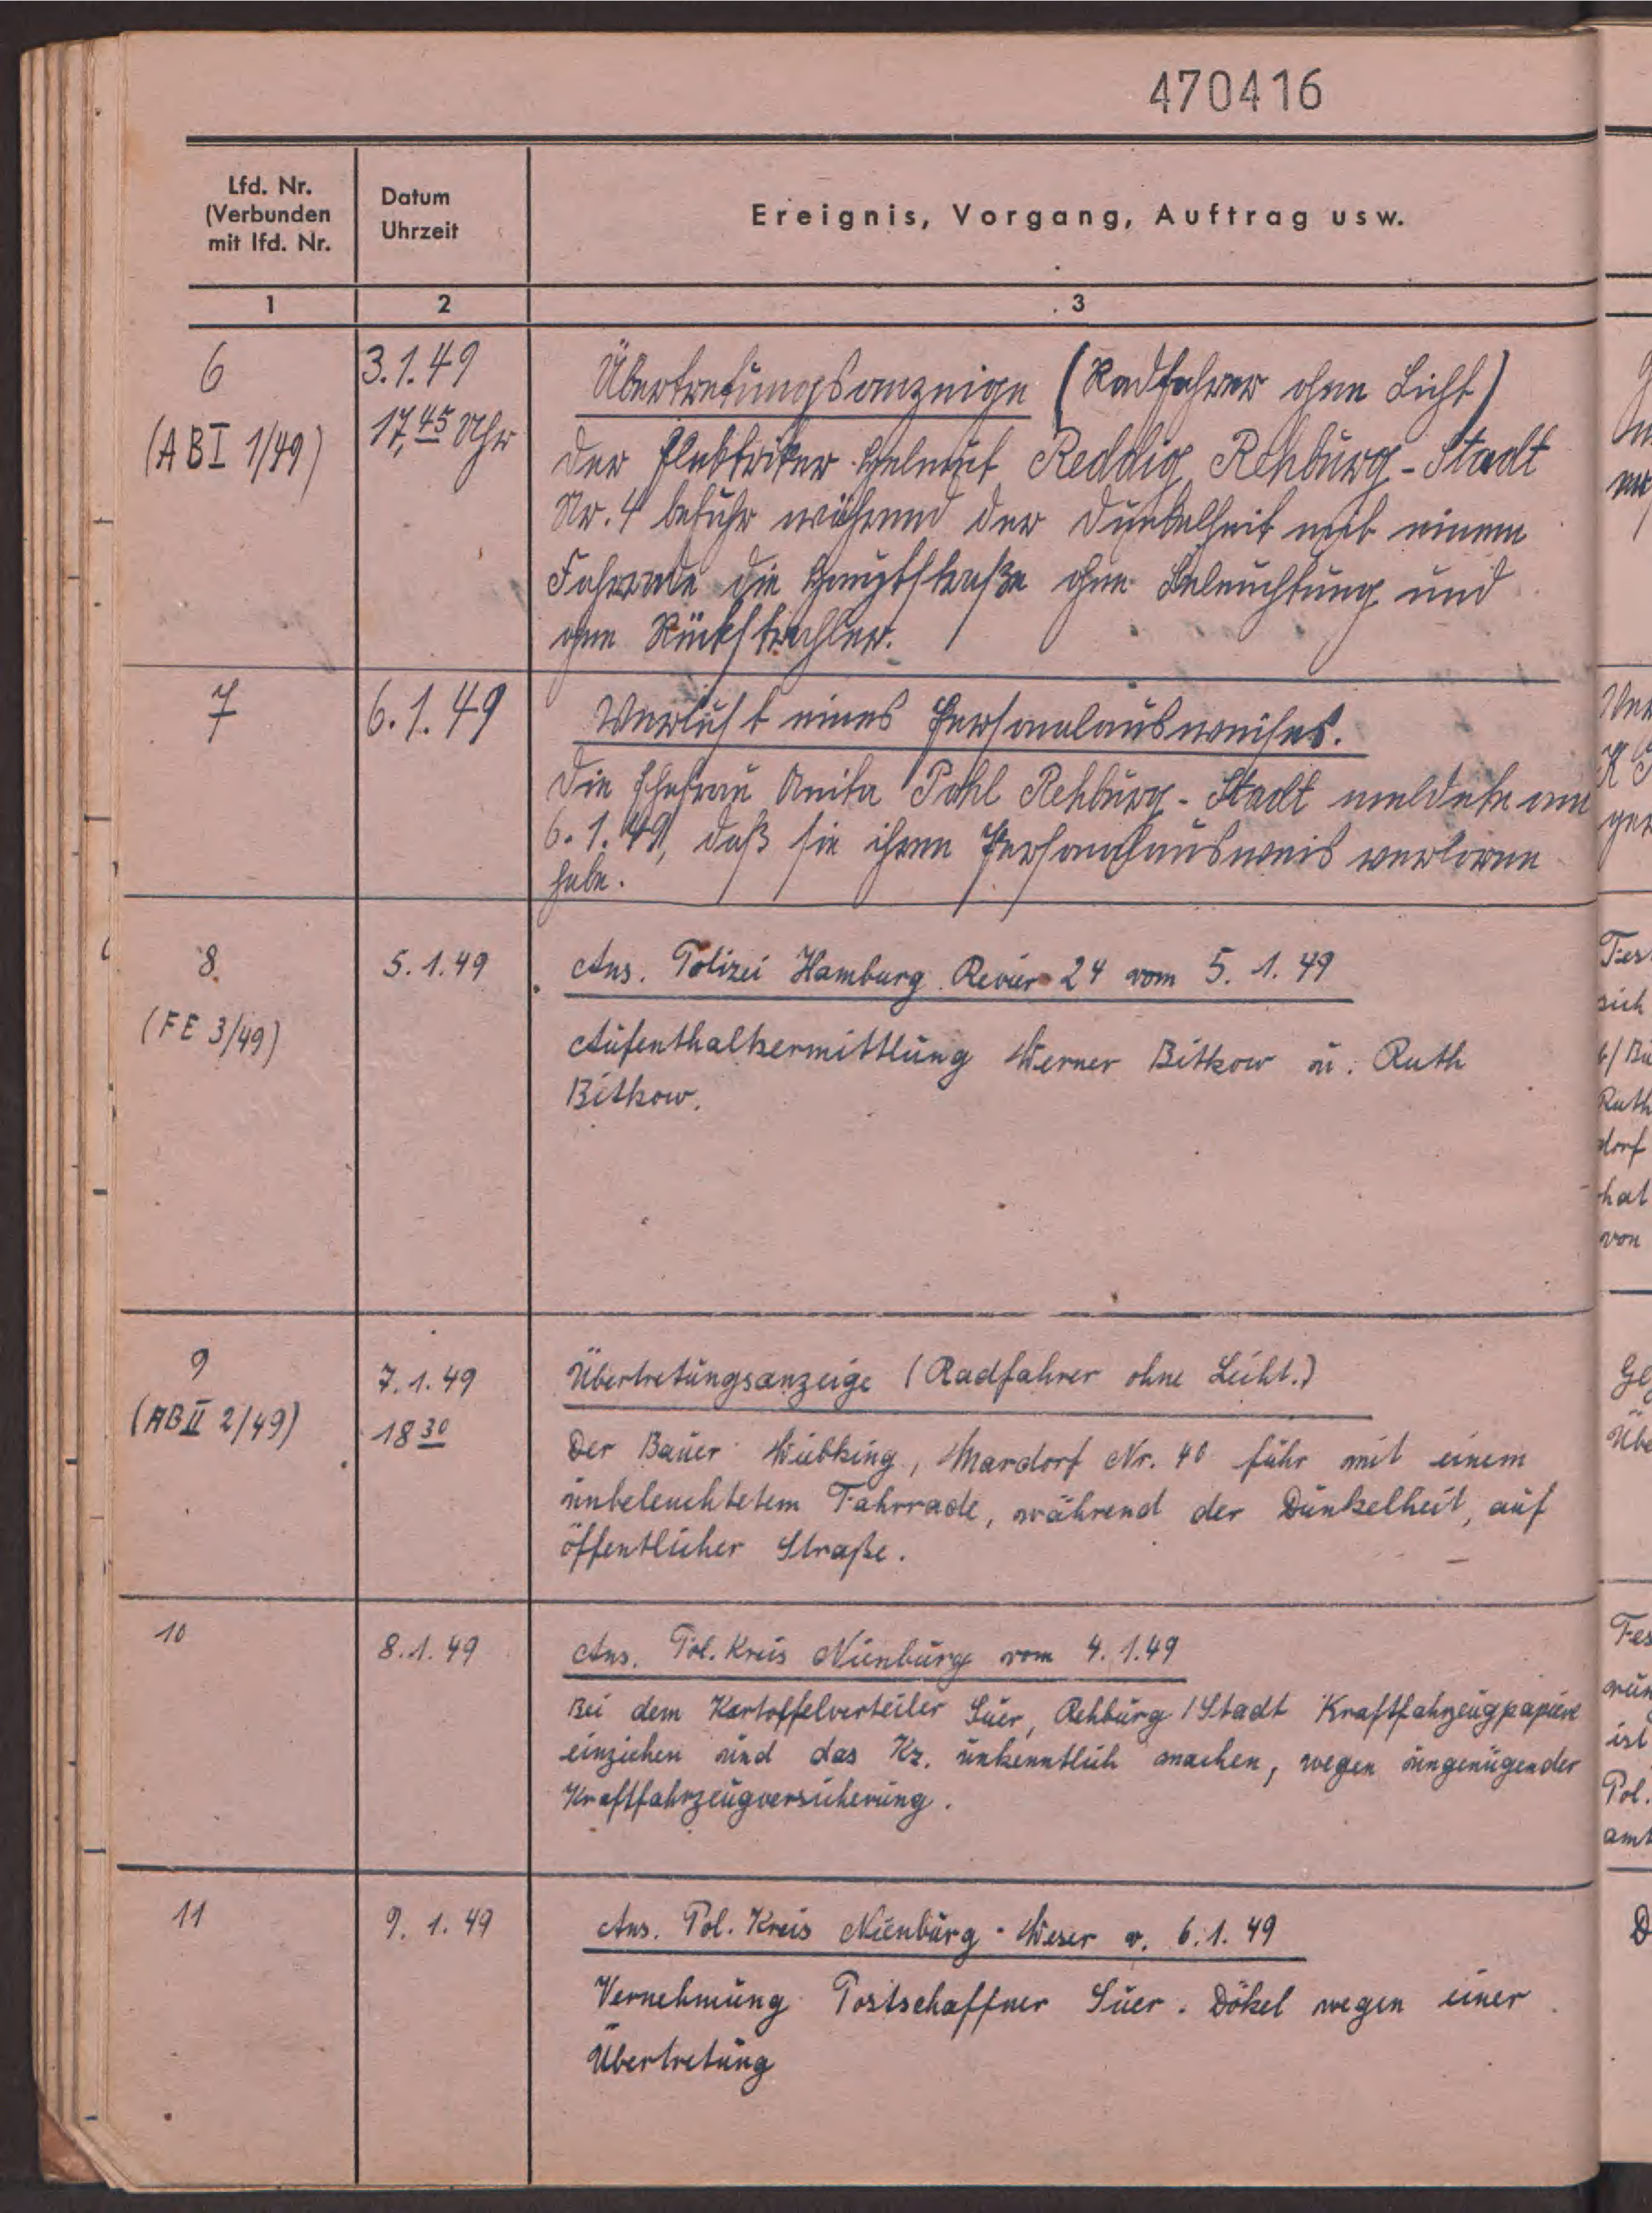 470416
Lfd. Nr.
(Verbunden
mit lfd. Nr.
Datum
Uhrzeit
Ereignis, Vorgang, Auftrag usw.
1
2
3
6
(AB I 1/49)
3.1.49
17,45 Uhr
Übertretungsanzeige (Radfahrer ohne Licht)
Der Elektriker Helmut Reddig Rehburg-Stadt
Nr. 4 befuhr während der Dunkelheit mit einem
Fahrrade die Hauptstraße ohne Beleuchtung und
ohne Rückstrahler.
7
6.1.49
Verlust eines Personalausweises.
Die Ehefrau Anita Pohl Rehburg-Stadt meldete am
6.1.49, daß sie ihren Personalausweis verloren
habe.
8.
(FE 3/49)
5.1.49
Ans. Polizei Hamburg Revier 24 vom 5.1.49
Aufenthaltsermittlung Werner Bitkow u. Ruth
Bitkow.
9
(AB II 2/49)
7.1.49
18 30
Übertretungsanzeige (Radfahrer ohne Licht.)
Der Bauer Wübking, Mardorf Nr. 40 fuhr mit einem
unbeleuchtetem Fahrrade, während der Dunkelheit, auf
öffentlicher Straße.
10
8.1.49
Ans. Pol. Kreis Nienburg vom 4.1.49
Bei dem Kartoffelverteiler Suer, Rehburg/Stadt Kraftfahrzeugpapiere
einziehen und das Kz. unkenntlich machen, wegen ungenügender
Kraftfahrzeugversicherung.
11
9.1.49
Ans. Pol. Kreis Nienburg-Weser v. 6.1.49
Vernehmung Postschaffner Suer. Dökel wegen einer
Übertretung